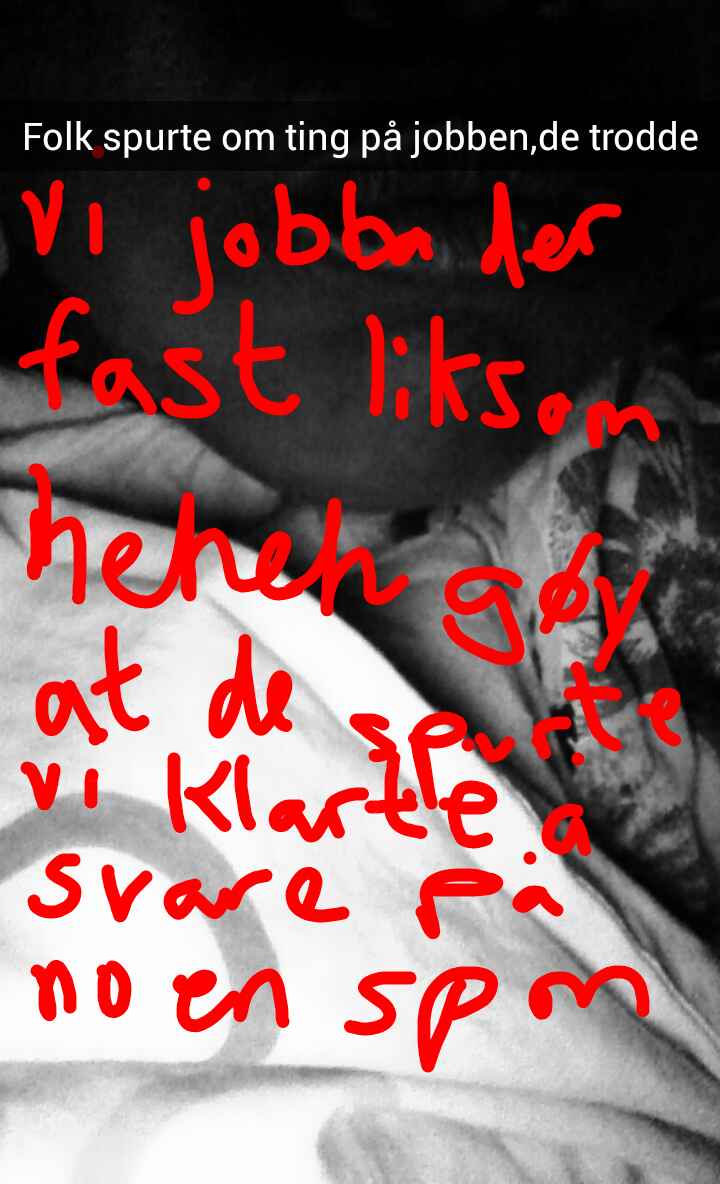 Folk spurte om ting på jobben,de trodde
vi jobba der
fast liksom
heheh gøy
at de spurte
vi klarte å
svare på
noen spm